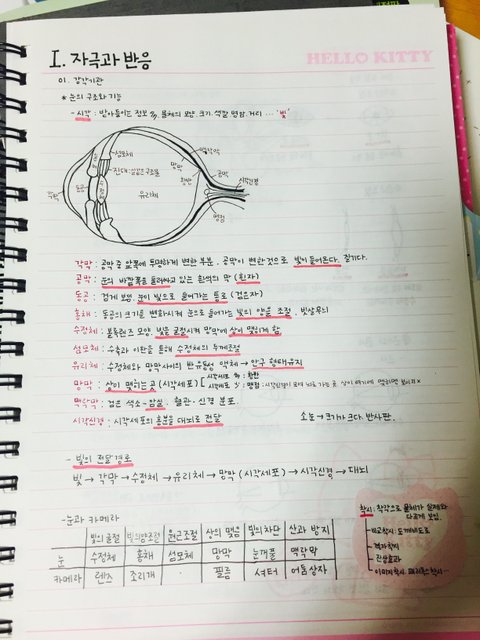 HELLO KITTY
I. 자극과 반응
01. 감각기관
* 눈의 구조와 기능
- 시각 : 받아들이는 정보 물체의 모양 크기 색깔 명암 거리 … '빛'
섬모체
진대
맥락막
망막
황반
공막
시각신경
동공
유리체
맹점
각막 : 공막 중 앞쪽에 투명하게 변한 부분. 공막이 변한 것으로 빛이 들어온다. 질기다.
공막 : 눈의 바깥쪽을 둘러싸고 있는 흰색의 막 (흰자)
동공 : 검게 보임, 눈이 빛으로 들어가는 통로 (검은자)
홍채 : 동공의 크기를 변화시켜 눈으로 들어가는 빛의 양을 조절.
수정체 : 볼록렌즈 모양 빛을 굴절시켜 망막에 상이 맺히게 함
섬모체 : 수축과 이완을 통해 수정체의 두께조절
유리체 : 수정체와 망막사이의 반유동성 액체 → 안구 형태유지
망막 : 상이 맺히는 곳 (시각세포) [ 시각세포 多 : 황반
시각세포 X : 맹점 : 시각신경이 모여 나가는 곳, 상이 맺히면 보이지 X
맥락막 : 검은 색소 - 암실. 혈관·신경 분포.
시각신경 : 시각세포의 흥분을 대뇌로 전달
- 빛의 전달 경로
빛 → 각막 → 수정체 → 유리체 → 망막 (시각세포) → 시각신경 → 대뇌
- 눈과 카메라
빛의 굴절 빛의양조절 원근조절 상의 맺음 빛의 차단 산과 방지
눈 수정체 홍채 섬모체 망막 눈꺼풀 맥락막
카메라 렌즈 조리개 필름 셔터 어둠상자
착시 : 착각으로 물체가 실제와 다르게 보임.
- 격자착시
- 잔상효과